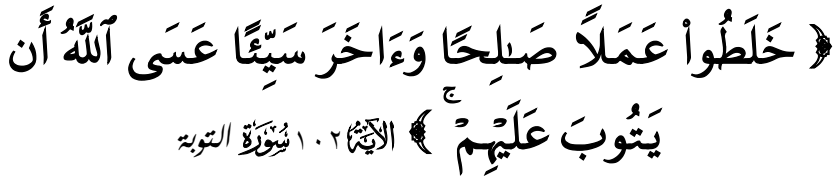 ﴿ خَلَطُوا۟ عَمَلًا صَـٰلِحًا وَءَاخَرَ سَيِّئًا عَسَى ٱللَّهُ أَن
يَتُوبَ عَلَيْهِمْ ۚ ﴾ الآيَةُ ١٠٢ سُورَة التوبة